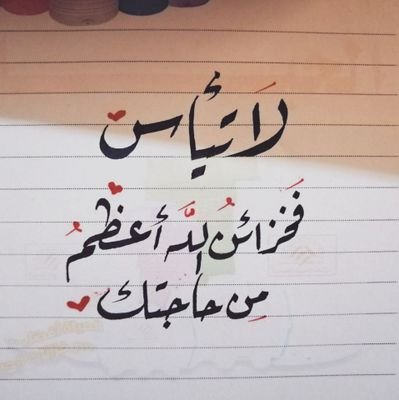 لَا تيأس
فَخزائنُ اللَّه أعظمُ
مِن حاجتك